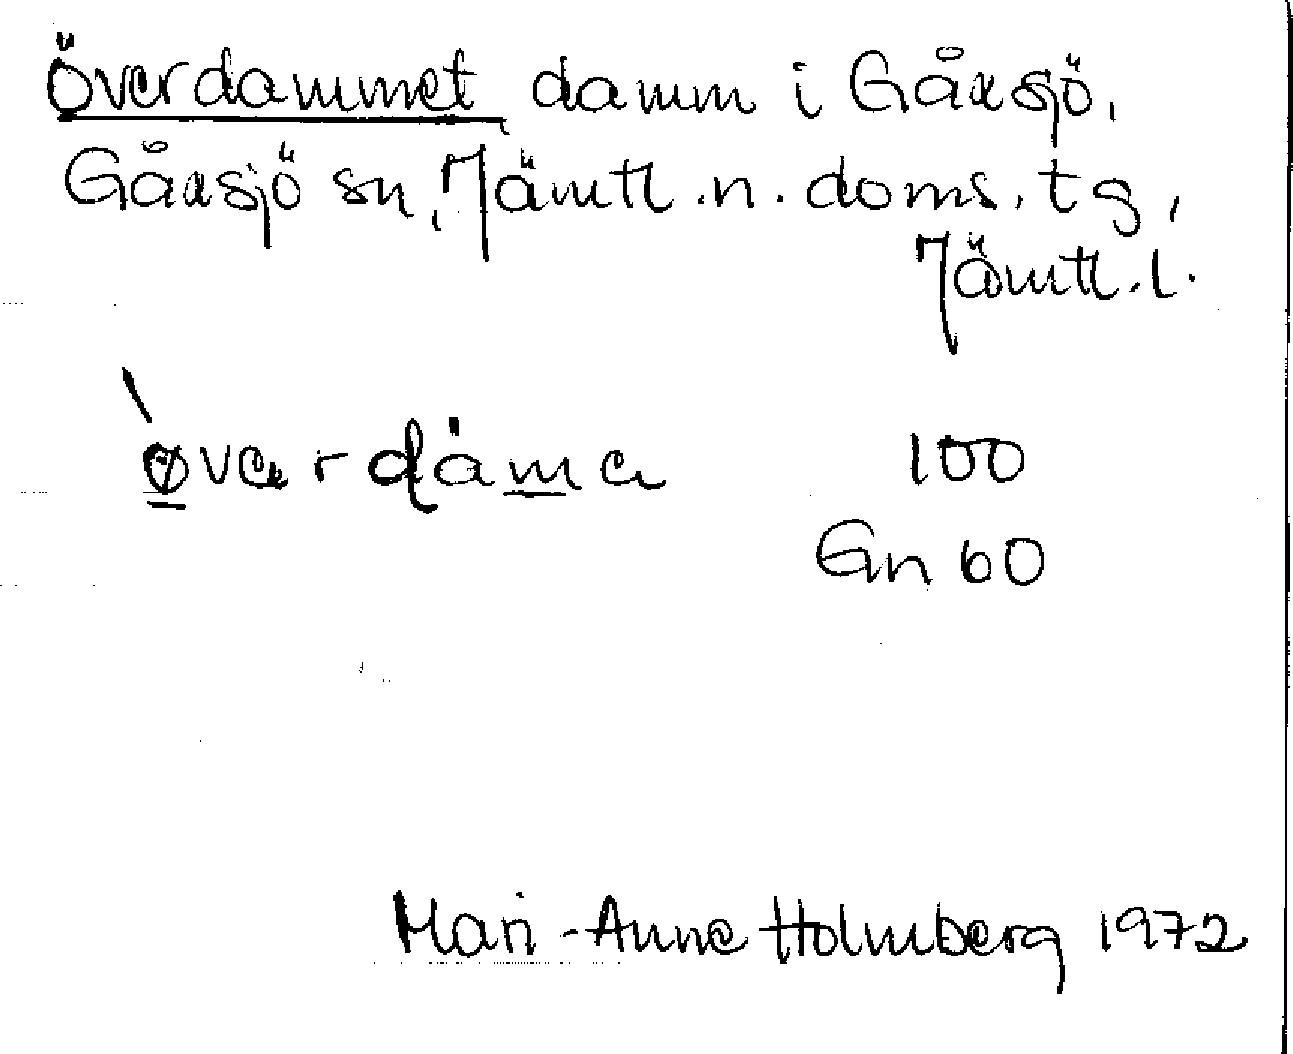 Överdammet, damm i Gåxsjö,
Gåxsjö sn, Jämtl.n.doms.tg,
Jämtl.l.
100
Gn 60
Mari-Anne Holmberg 1972